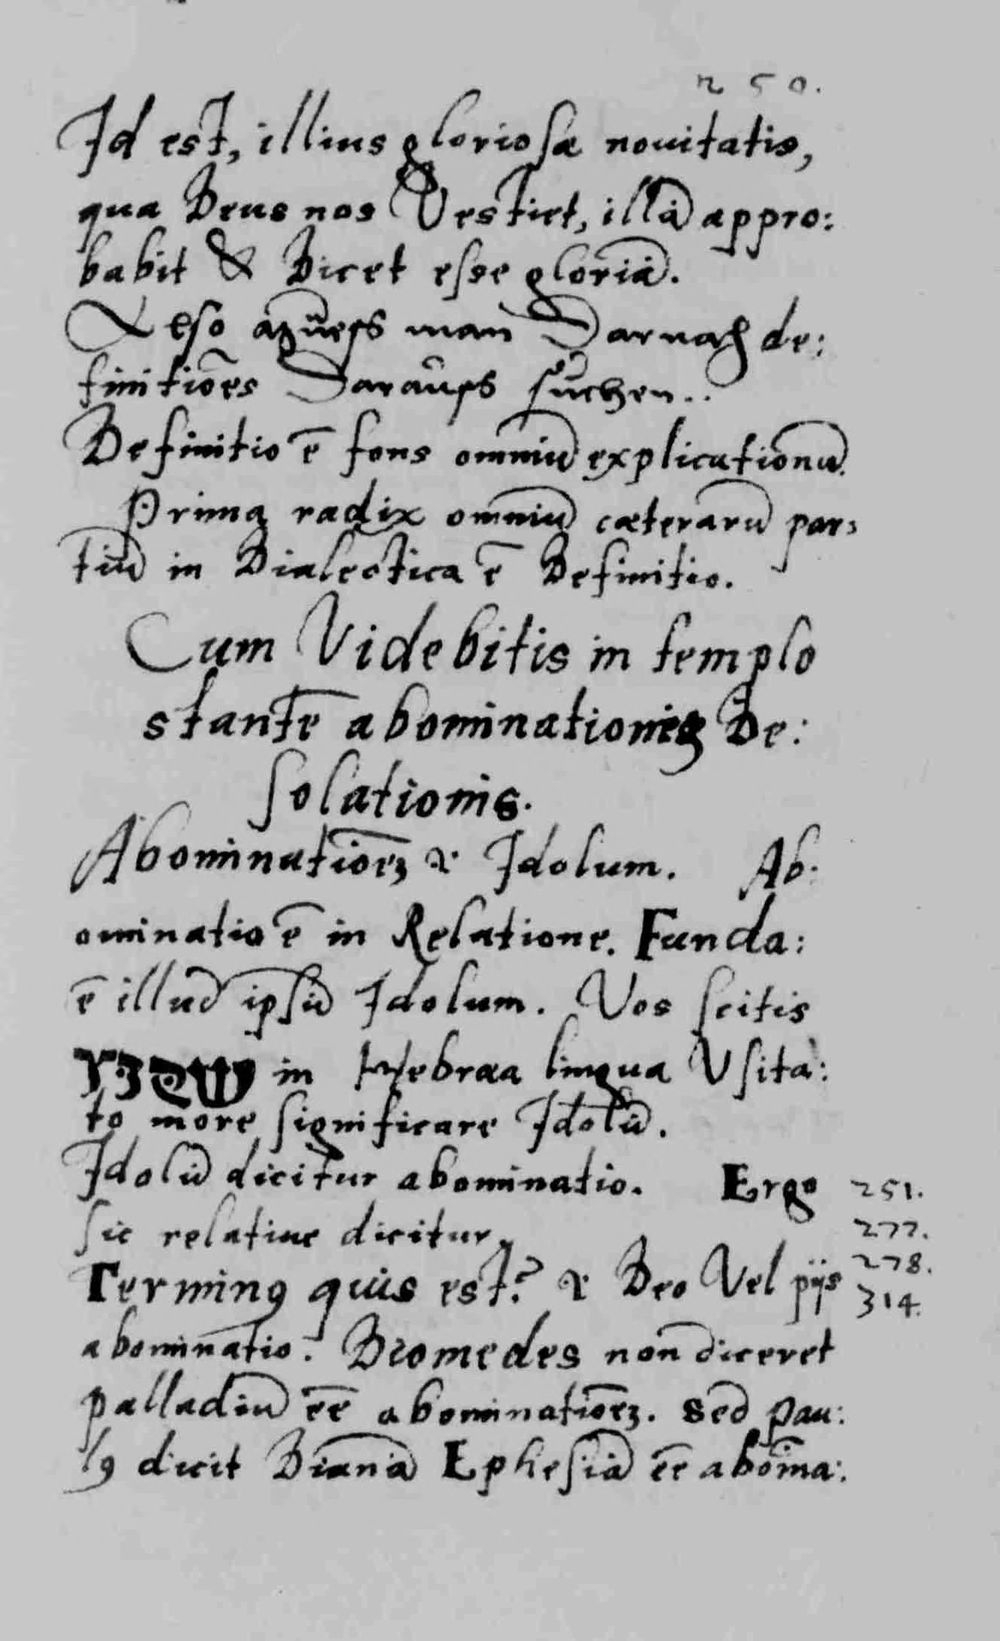 250.
Id est, illius gloriosæ nouitatis,
qua Deus nos Vestiet, illā appro:
babit & Dicet esse gloriā.
Also mūess man Darnach de:
finitiōes Darauſs suchen..
Definitio ē fons omniū explicationū.
Prima radix omniū cæterarū par:
tiū in Dialectica ē Definitio.
Cum Videbitis in templo
stantē abominationis De:
solationis.
Abominatiōeꝫ & Idolum. Ab:
ominatio ē in Relatione. Funda:
ē illud ipsū Idolum. Vos scitis
שקוץ in Hebræa lingua Vsita:
to more significare Idolū.
Idolū dicitur abominatio. Ergo 251.
sic relatiue dicitur. 277.
Terminꝰ quis est? & Deo Vel pijs 278.
314.
abominatio. Diomedes non diceret
palladiū eē abominatiōeꝫ. Sed pau:
lꝰ dicit Dianā Ephesiā eē abōina: